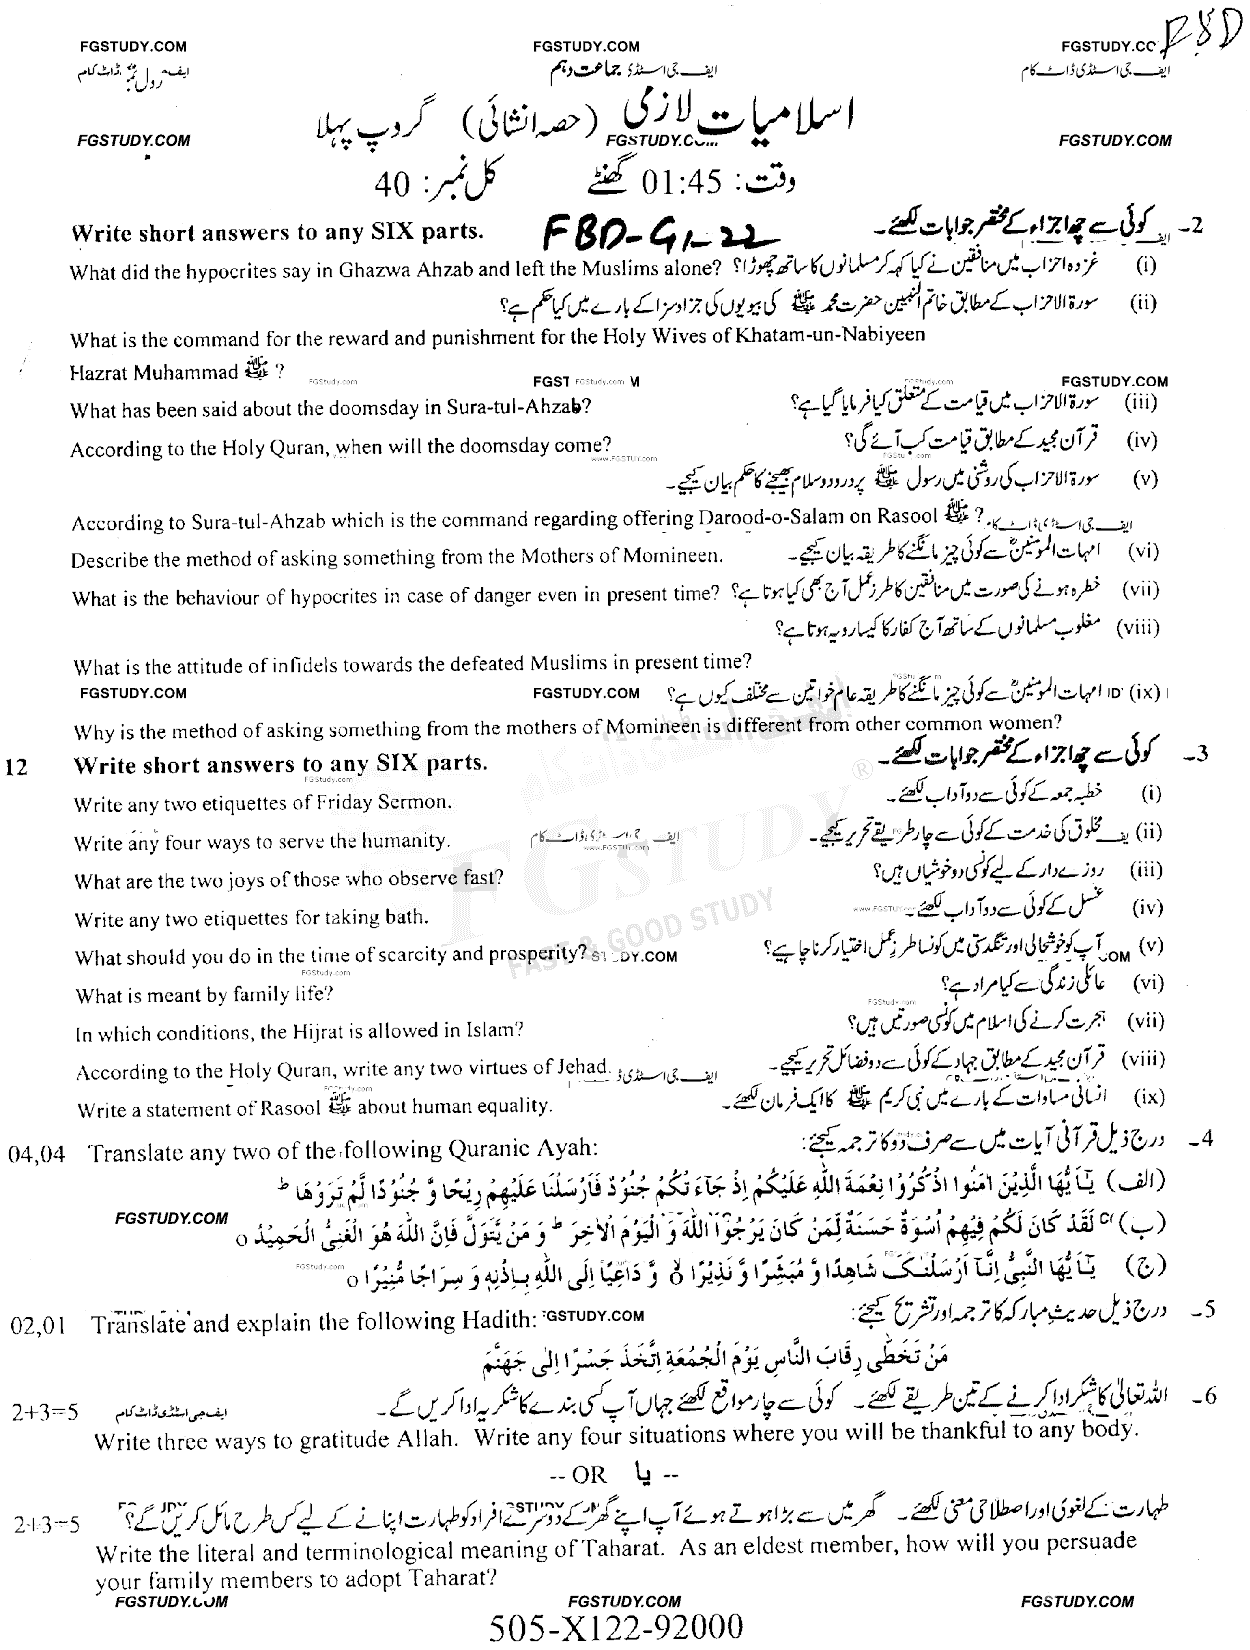 FGSTUDY.COM FGSTUDY.COM FGSTUDY.CC FBD
رول نمبر ایف جی اسٹڈی جماعت دہم ایف جی اسٹڈی ڈاٹ کام
اسلامیات لازمی (حصہ انشائی) گروپ پہلا
FGSTUDY.COM FGSTUDY.COM FGSTUDY.COM
وقت: 01:45 گھنٹے کل نمبر: 40
2- کوئی سے چھ اجزاء کے مختصر جوابات لکھئے۔ FBD-G1-22 Write short answers to any SIX parts.
(i) غزوہ احزاب میں منافقین نے کیا کہہ کر مسلمانوں کا ساتھ چھوڑا؟ What did the hypocrites say in Ghazwa Ahzab and left the Muslims alone?
(ii) سورۃ الاحزاب کے مطابق خاتم النبیین حضرت محمد ﷺ کی بیویوں کی جزا و سزا کے بارے میں کیا حکم ہے؟
What is the command for the reward and punishment for the Holy Wives of Khatam-un-Nabiyeen
Hazrat Muhammad ﷺ ?
FGStudy.com FGST FGStudy.com M FGStudy.com FGSTUDY.COM
(iii) سورۃ الاحزاب میں قیامت کے متعلق کیا فرمایا گیا ہے؟ What has been said about the doomsday in Sura-tul-Ahzab?
(iv) قرآن مجید کے مطابق قیامت کب آئے گی؟ According to the Holy Quran, when will the doomsday come?
www.FGSTUY.com
(v) سورۃ الاحزاب کی روشنی میں رسول ﷺ پر درود و سلام بھیجنے کا حکم بیان کیجیے۔
According to Sura-tul-Ahzab which is the command regarding offering Darood-o-Salam on Rasool ﷺ ? ایف جی اسٹڈی ڈاٹ کام
(vi) امہات المومنینؓ سے کوئی چیز مانگنے کا طریقہ بیان کیجیے۔ Describe the method of asking something from the Mothers of Momineen.
(vii) خطرہ ہونے کی صورت میں منافقین کا طرز عمل آج بھی کیا ہوتا ہے؟ What is the behaviour of hypocrites in case of danger even in present time?
(viii) مغلوب مسلمانوں کے ساتھ آج کفار کا کیسا رویہ ہوتا ہے؟
What is the attitude of infidels towards the defeated Muslims in present time?
FGSTUDY.COM FGSTUDY.COM (ix) امہات المومنینؓ سے کوئی چیز مانگنے کا طریقہ عام خواتین سے مختلف کیوں ہے؟
Why is the method of asking something from the mothers of Momineen is different from other common women?
3- کوئی سے چھ اجزاء کے مختصر جوابات لکھئے۔ Write short answers to any SIX parts. 12
FGStudy.com
(i) خطبہ جمعہ کے کوئی سے دو آداب لکھئے۔ Write any two etiquettes of Friday Sermon.
(ii) مخلوق کی خدمت کے کوئی سے چار طریقے تحریر کیجیے۔ Write any four ways to serve the humanity. ایف جی اسٹڈی ڈاٹ کام
(iii) روزے دار کے لیے کونسی دو خوشیاں ہیں؟ What are the two joys of those who observe fast?
(iv) غسل کے کوئی سے دو آداب لکھئے۔ Write any two etiquettes for taking bath.
(v) آپ کو خوشحالی اور تنگدستی میں کونسا طرز عمل اختیار کرنا چاہیے؟ What should you do in the time of scarcity and prosperity?
FGStudy.com
(vi) عائلی زندگی سے کیا مراد ہے؟ What is meant by family life?
(vii) ہجرت کرنے کی اسلام میں کونسی صورتیں ہیں؟ In which conditions, the Hijrat is allowed in Islam?
(viii) قرآن مجید کے مطابق جہاد کے کوئی سے دو فضائل تحریر کیجیے۔ According to the Holy Quran, write any two virtues of Jehad. ایف جی اسٹڈی
(ix) انسانی مساوات کے بارے میں نبی کریم ﷺ کا ایک فرمان لکھئے۔ Write a statement of Rasool ﷺ about human equality.
FGSTUDY
FAST & GOOD STUDY
4- درج ذیل قرآنی آیات میں سے صرف دو کا ترجمہ کیجئے: Translate any two of the following Quranic Ayah: 04,04
(الف) يٰٓاَيُّهَا الَّذِيْنَ اٰمَنُوا اذْكُرُوْا نِعْمَةَ اللّٰهِ عَلَيْكُمْ اِذْ جَآءَتْكُمْ جُنُوْدٌ فَاَرْسَلْنَا عَلَيْهِمْ رِيْحًا وَّ جُنُوْدًا لَّمْ تَرَوْهَا ط
(ب) لَقَدْ كَانَ لَكُمْ فِيْهِمْ اُسْوَةٌ حَسَنَةٌ لِّمَنْ كَانَ يَرْجُوا اللّٰهَ وَ الْيَوْمَ الْاٰخِرَ ط وَ مَنْ يَّتَوَلَّ فَاِنَّ اللّٰهَ هُوَ الْغَنِيُّ الْحَمِيْدُ o FGSTUDY.COM
(ج) يٰٓاَيُّهَا النَّبِيُّ اِنَّآ اَرْسَلْنٰكَ شَاهِدًا وَّ مُبَشِّرًا وَّ نَذِيْرًا o وَّ دَاعِيًا اِلَى اللّٰهِ بِاِذْنِهٖ وَ سِرَاجًا مُّنِيْرًا o FGStudy.com
5- درج ذیل حدیث مبارکہ کا ترجمہ اور تشریح کیجئے: Translate and explain the following Hadith: FGSTUDY.COM 02,01
مَنْ تَخَطّٰى رِقَابَ النَّاسِ يَوْمَ الْجُمُعَةِ اِتَّخَذَ جَسْرًا اِلٰى جَهَنَّمَ
6- اللہ تعالیٰ کا شکر ادا کرنے کے تین طریقے لکھئے۔ کوئی سے چار مواقع لکھئے جہاں آپ کسی بندے کا شکریہ ادا کریں گے۔ ایف جی اسٹڈی ڈاٹ کام 2+3=5
Write three ways to gratitude Allah. Write any four situations where you will be thankful to any body.
-- OR یا --
طہارت کے لغوی اور اصطلاحی معنی لکھئے۔ گھر میں سے بڑا ہوتے ہوئے آپ اپنے گھر کے دوسرے افراد کو طہارت اپنانے کے لیے کس طرح مائل کریں گے؟ 2+3=5
Write the literal and terminological meaning of Taharat. As an eldest member, how will you persuade
your family members to adopt Taharat?
FGSTUDY.COM FGSTUDY.COM FGSTUDY.COM
505-X122-92000